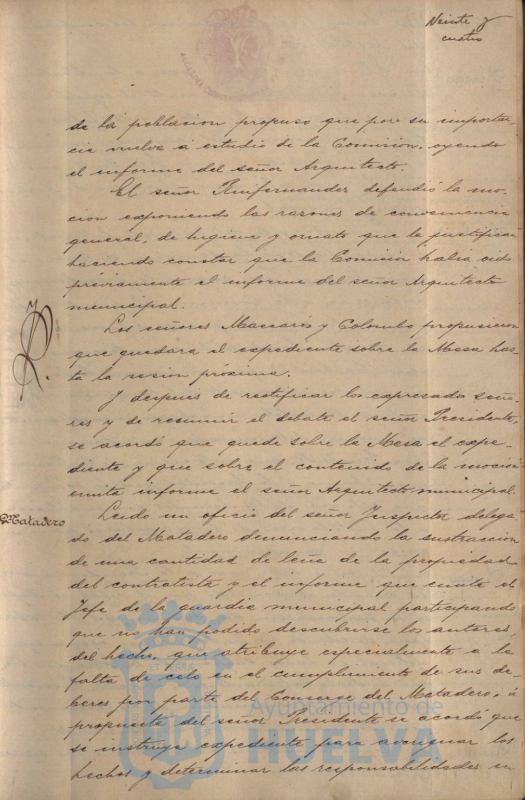 Veinte y
cuatro
de la poblacion propuso que por su importan-
cia vuelva a estudio de la Comisión, oyendo
el informe del señor Arquitecto.
El señor Ruifernandez defendió la mo-
cion exponiendo las razones de conveniencia
general, de higiene y ornato que la justifican
haciendo constar que la Comisión habia oido
préviamente el informe del señor Arquitecto
municipal.
Los señores Mascarós y Colombo propusieron
que quedara el expediente sobre la Mesa has-
ta la sesion próxima.
Y despues de rectificar los expresados seño-
res y de resumir el debate el señor Presidente,
se acordó que quede sobre la Mesa el expe-
diente y que sobre el contenido de la mocion
emita informe el señor Arquitecto municipal.
Matadero
Leido un oficio del señor Inspector delega-
do del Matadero denunciando la sustraccion
de una cantidad de leña de la propiedad
del contratista y el informe que emite el
Jefe de la guardia municipal participando
que no han podido descubrirse los autores
del hecho, que atribuye especialmente a la
falta de celo en el cumplimiento de sus de-
beres por parte del Conserge del Matadero, á
propuesta del señor Presidente se acordó que
se instruya expediente para averiguar los
hechos y determinar las responsabilidades en
Ayuntamiento de
HUELVA